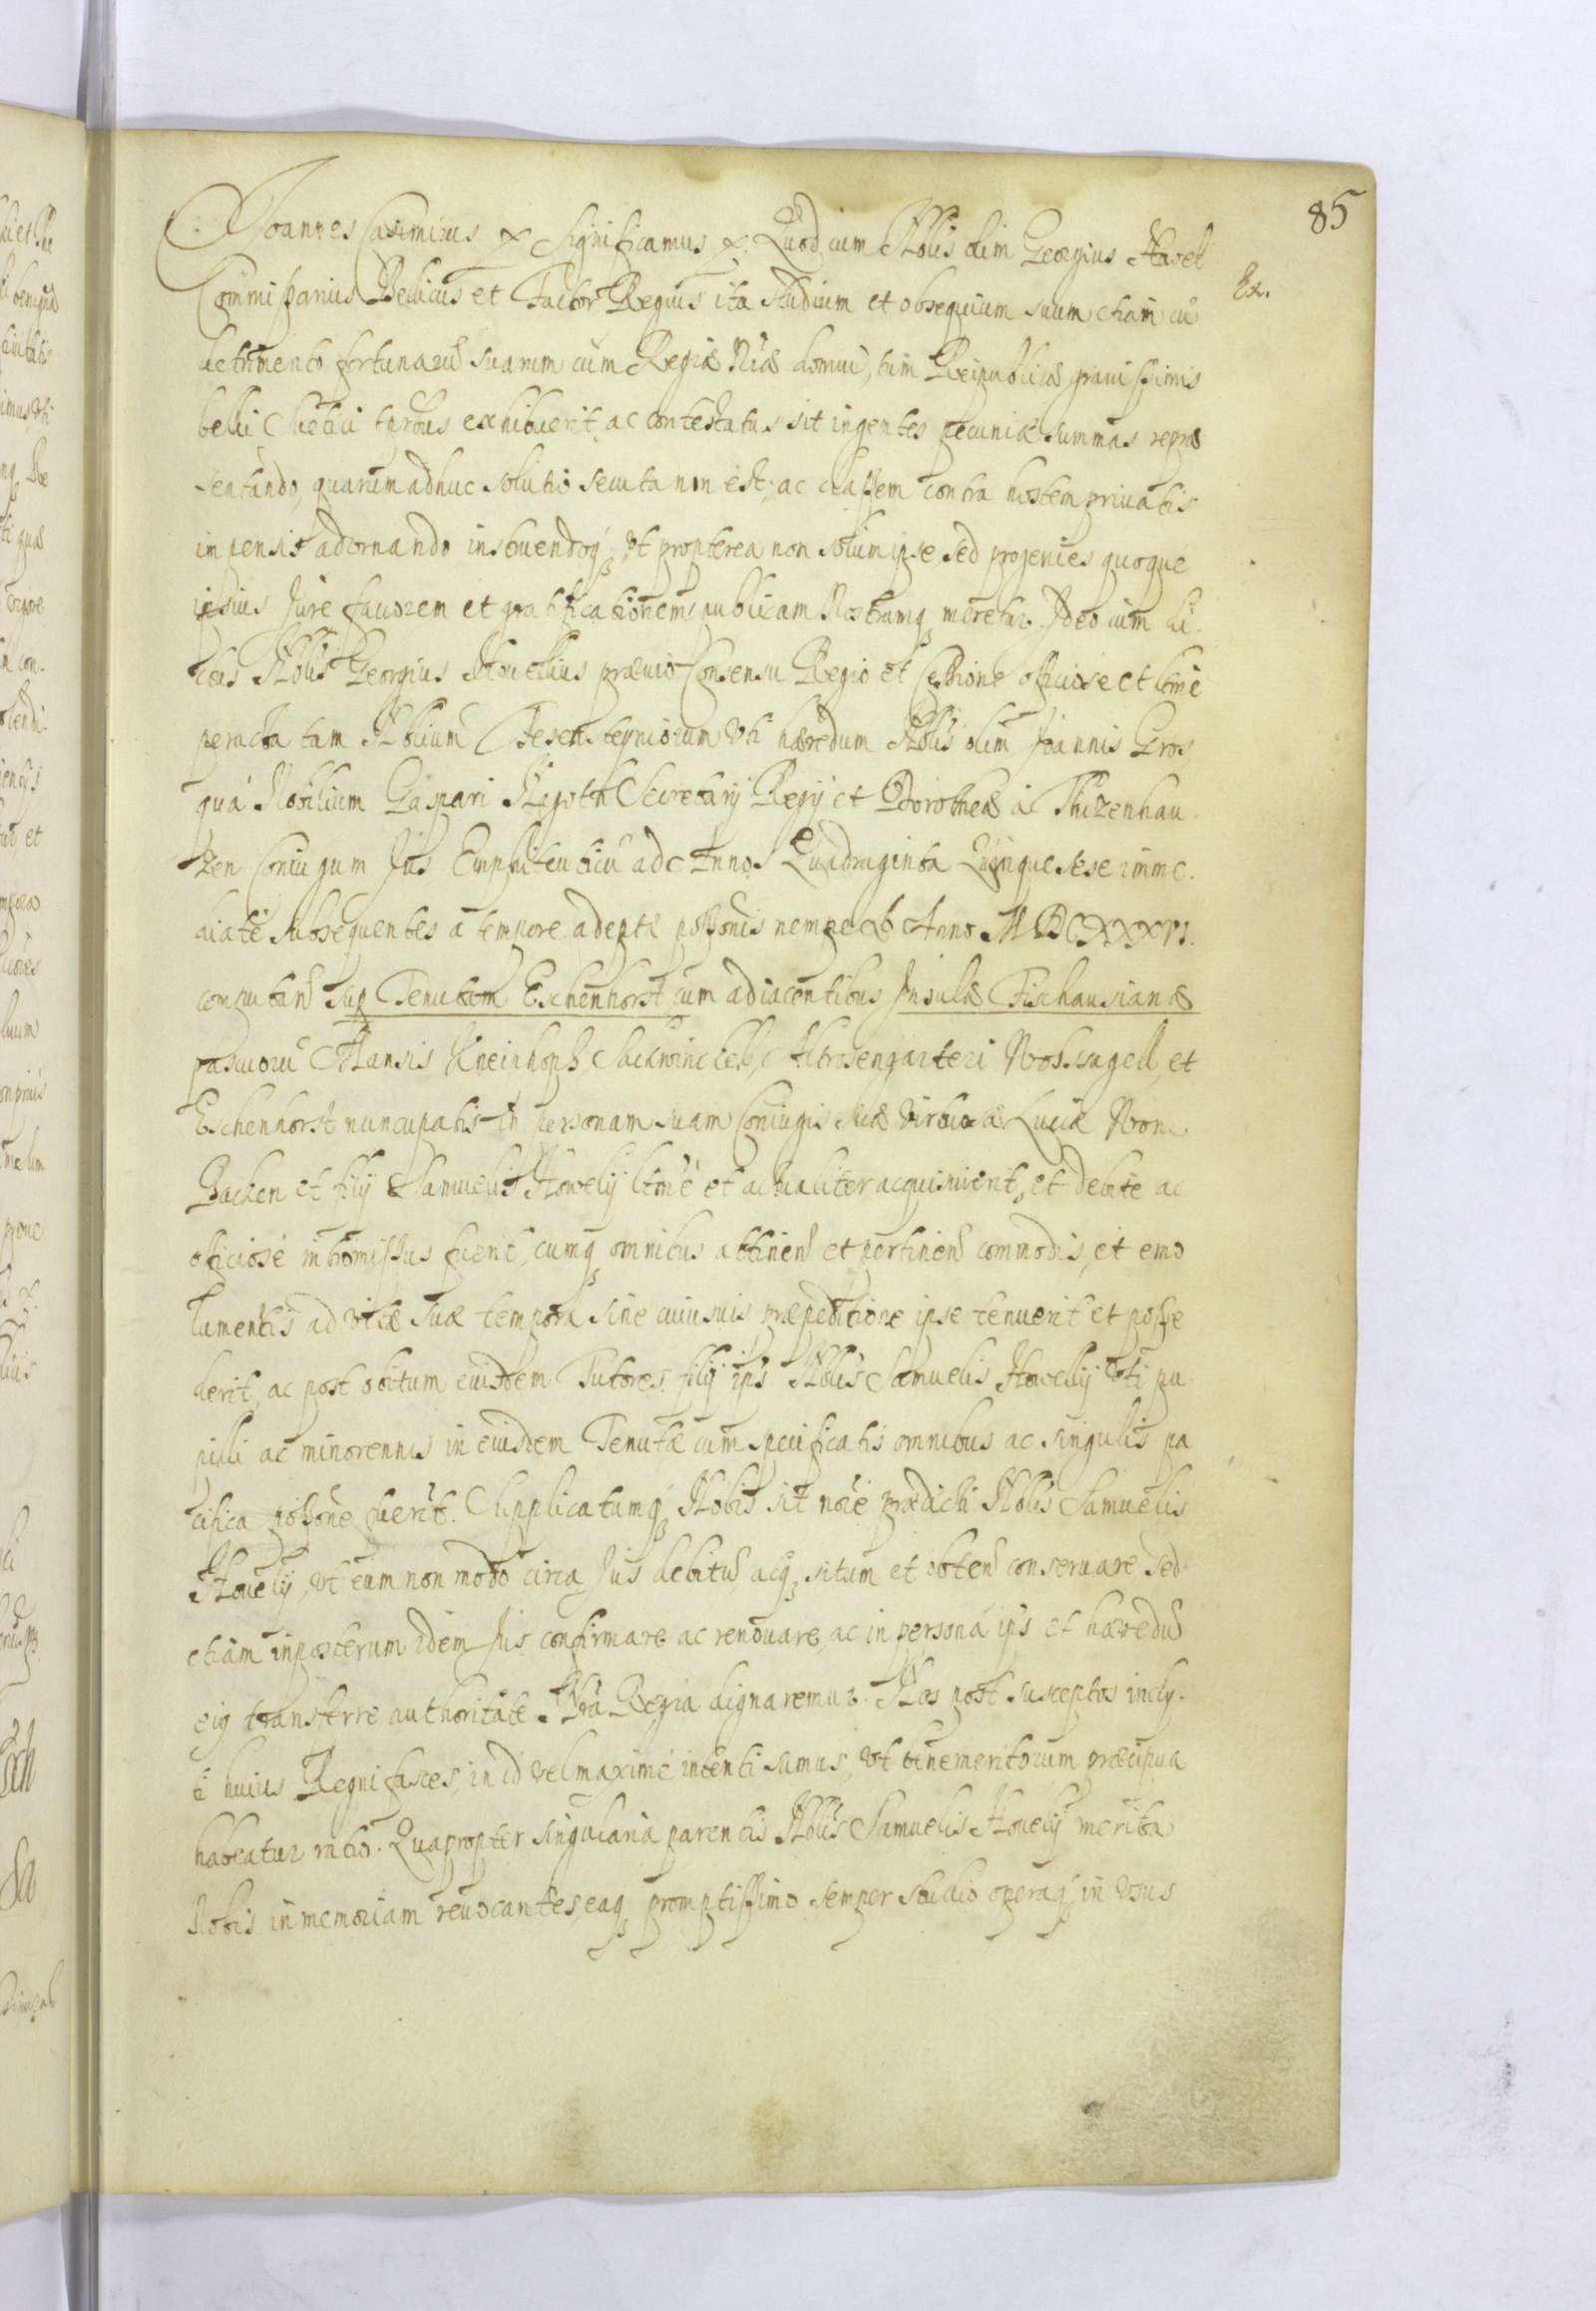 85
Joannes Casimirus &c Significamus &c. Quod cum Nobilis olim Georgius Havel
Ex.
Commissarius Bellicus et Factor Regius ita studium et obsequium suum etiam cũ
detrimento fortunarũ suarum cum Regiæ Nræ domui, tum Reipublicæ gravissimis
belli Suetici turbis exhibuerit ac contestatus sit ingentes pecuniæ summas repræ
sentando, quarum adhuc solutio secuta non est; ac classem contra hostem privatis
impensis adornando instruendoq; vt propterea non solum ipse sed progenies quoque
ipsius Jure favorem et gratificationem publicam Nostramq; meretur. Ideo cum di
ctus Nobilis Georgius Hovelius prævio Consensu Regio et Cessione officiose et ltimè
peracta tam Nobilium Fesensteyniorum vti hæredum Nobilis olim Joannis Gros
quá Nobilium Caspari Hegotn Secretarij Regij et Dorotheæ à Thizenhau
zen Coniugum Jus Emphiteuticũ ad Annos Quadraginta Quinque sese imme
diatè subsequentes à tempore adeptæ possonis nempe ab Anno MDCXXXVI.
computand sup Tenutam Eschenhorst cum adiacentibus Insulæ Fischausianæ
pascuorũ Mansis Kneinhoph, Sackwinckell, Altrosengarten Wolssagell, et
Eschenhorst nuncupatis in personam suam Coniugis suæ Virtuosæ Luciæ Von
Backen et filij Samuelis Howelij ltimè et actualiter acquisiuerit, et debitè ac
officiosè intromissus fuerit, cumq; omnibus attinen et pertinen commodis, et emo
lumentis ad vitæ suæ tempora sine cuiusuis præpeditione ipse tenuerit et posse
derit, ac post obitum eiusdem Tutores filij ips Nobilis Samuelis Howelij vti pu
pilli ac minorennis in eiusdem Tenutæ cum specificatis omnibus ac singulis pa
cifica possone fuerit. Supplicatumq; Nobis sit noïe prædicti Nobilis Samuelis
Hovelij, vt eum non modo circa Jus debitè acq situm et obten conseruare sed
etiam inposterum idem Jus confirmare ac renouare, ac in personá ips et hæredũ
eig transferre authoritate Nrâ Regia dignaremur. Nos post susceptos incly
ti huius Regni fasces, in id vel maximè intenti sumus, vt benemeritorum præcipua
habeatur ratio. Quapropter singularia parentis Nobilis Samuelis Hovelij merita
Nobis in memoriam reuocantes, eaq; promptissimo semper studio operaq; in vsus